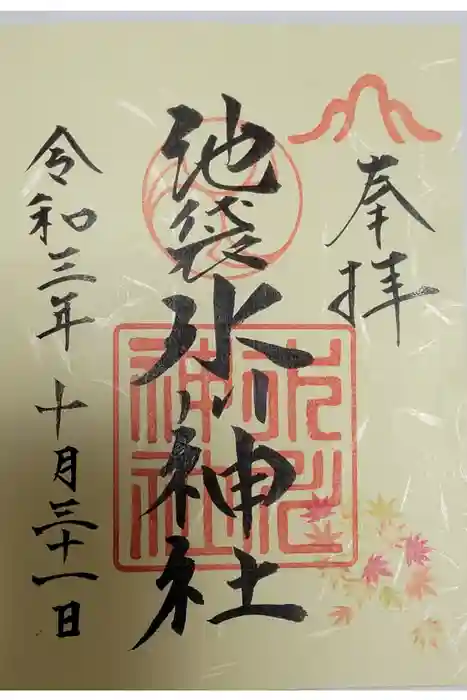 奉拝
池袋氷川神社
氷川神社
令和三年 十月三十一日